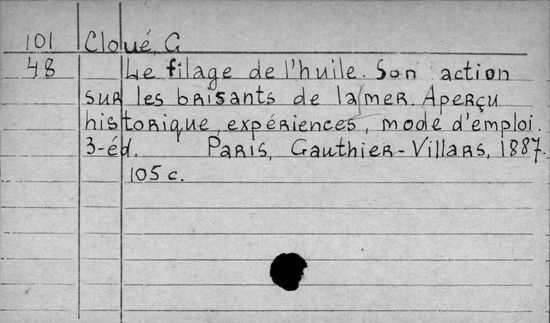 101 Cloué, G
48 Le filage de l'huile. Son action
sur les brisants de la mer. Aperçu
historique, expériences, mode d'emploi.
3-éd. Paris, Gauthier-Villars, 1887.
105 c.